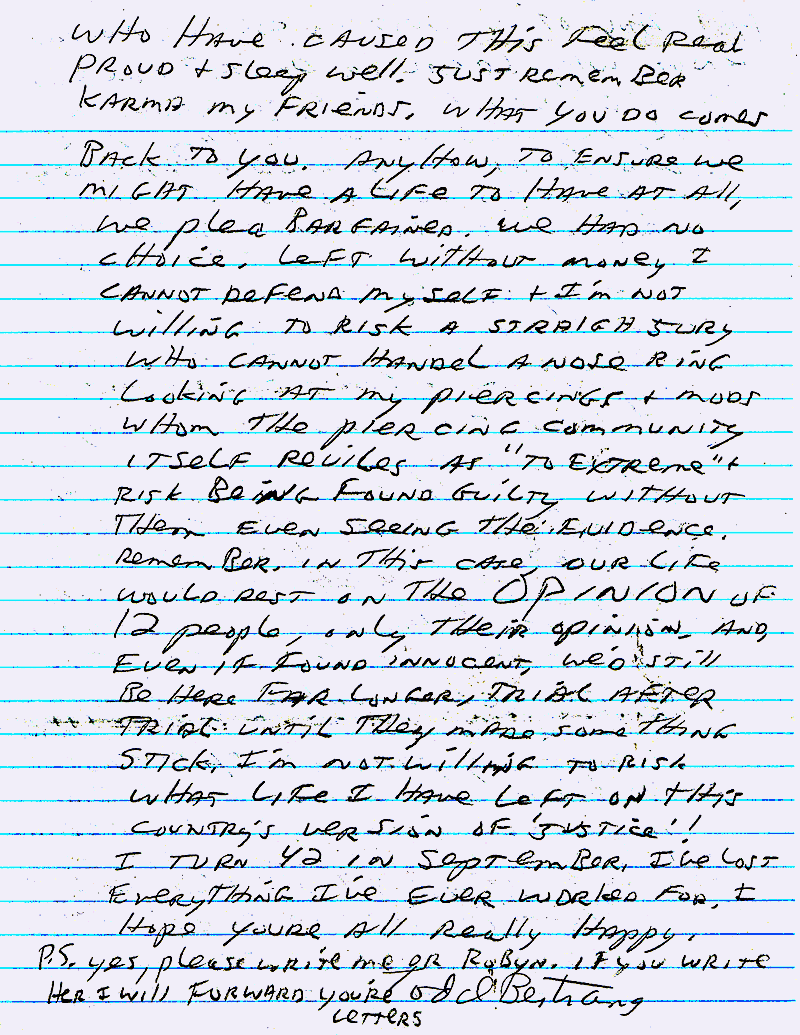 WHO HAVE CAUSED THIS Feel Real
PROUD + Sleep well. JUST Remem BER
KARMA my FRIENDS. WHAT YOU DO comes
BACK TO YOU. ANYHOW, TO ENSURE we
MIGHT HAVE A LIFE TO HAVE AT All,
we plea BARGAINED. we HAD NO
CHOICE. LEFT WITHOUT money I
CANNOT DEFEND MySELF + I'm NOT
WILLING TO RISK A STRAIGH JURY
WHO CANNOT HANDEL A NOSE RING
LOOKING AT my PIERCINGS + MODS
WHOM THE PIERCING COMMUNITY
ITSELF REVILES AS "TO EXTREME" +
RISK BEING FOUND GUILTY WITHOUT
THEM EVEN SEEING THE EVIDENCE.
Remem BER. IN THIS CASE, OUR LIFE
WOULD REST ON THE OPINION OF
12 people, only THEIR OPINION. AND,
EVEN IF FOUND INNOCENT, WE'D STILL
BE HERE FAR LONGER, TRIAL AFTER
TRIAL UNTIL THEY MADE SOMETHING
STICK. I'm NOT WILLING TO RISK
WHAT LIFE I HAVE LEFT ON THIS
COUNTRY'S VERSION OF 'JUSTICE'!
I TURN 42 IN SEPTEMBER, I'VE LOST
EVERYTHING I'VE EVER WORKED FOR, I
HOPE YOURE All Really HAPPY.
P.S. yes, please write me or ROBYN. IF YOU WRITE
HER I WILL FORWARD YOU'RE
LETTERS